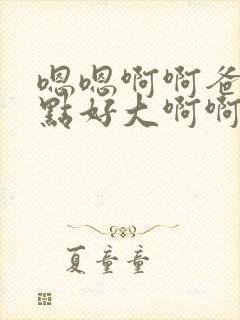 嗯嗯啊啊爸
點好大啊啊
夏童童